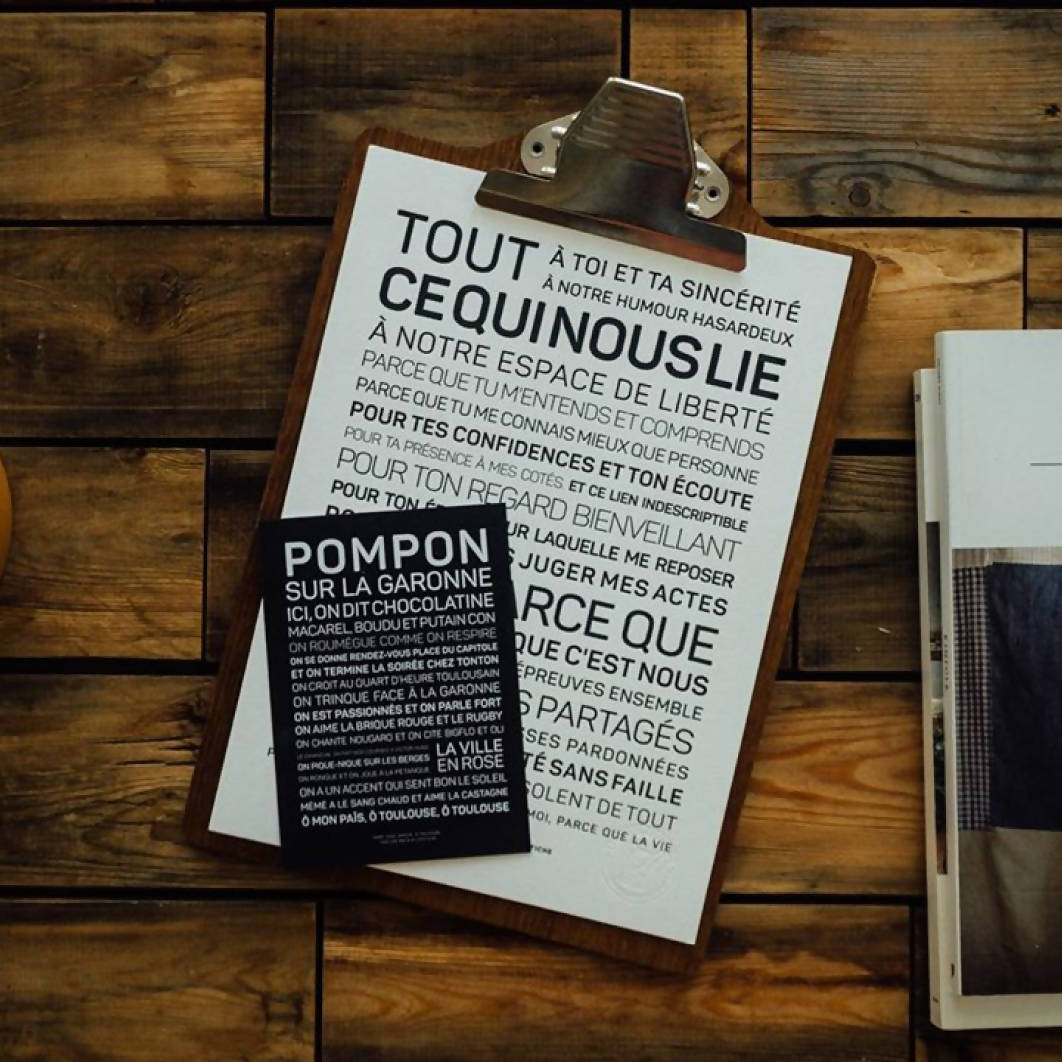 TOUT À TOI ET TA SINCÉRITÉ
À NOTRE HUMOUR HASARDEUX
CE QUI NOUS LIE
À NOTRE ESPACE DE LIBERTÉ
PARCE QUE TU M'ENTENDS ET COMPRENDS
PARCE QUE TU ME CONNAIS MIEUX QUE PERSONNE
POUR TES CONFIDENCES ET TON ÉCOUTE
POUR TA PRÉSENCE À MES COTÉS ET CE LIEN INDESCRIPTIBLE
POUR TON REGARD BIENVEILLANT
POUR TON UR LAQUELLE ME REPOSER
JUGER MES ACTES
RCE QUE
QUE C'EST NOUS
ÉPREUVES ENSEMBLE
S PARTAGÉS
SSES PARDONNÉES
TÉ SANS FAILLE
SOLENT DE TOUT
MOI, PARCE QUE LA VIE
POMPON
SUR LA GARONNE
ICI, ON DIT CHOCOLATINE
MACAREL, BOUDU ET PUTAIN CON
ON ROUMÈGUE COMME ON RESPIRE
ON SE DONNE RENDEZ-VOUS PLACE DU CAPITOLE
ET ON TERMINE LA SOIRÉE CHEZ TONTON
ON CROIT AU QUART D'HEURE TOULOUSAIN
ON TRINQUE FACE À LA GARONNE
ON EST PASSIONNÉS ET ON PARLE FORT
ON AIME LA BRIQUE ROUGE ET LE RUGBY
ON CHANTE NOUGARO ET ON CITE BIGFLO ET OLI
ON PIQUE-NIQUE SUR LES BERGES
ON RONGUE ET ON JOUE À LA PÉTANQUE
LA VILLE
EN ROSE
ON A UN ACCENT QUI SENT BON LE SOLEIL
MÊME A LE SANG CHAUD ET AIME LA CASTAGNE
Ô MON PAÏS, Ô TOULOUSE, Ô TOULOUSE